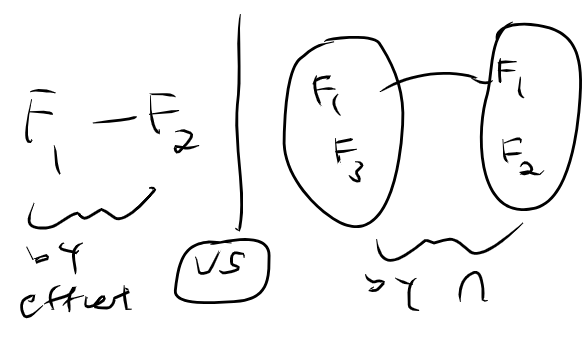 F₁ — F₂
by
effect
VS
F₁
F₃
F₁
F₂
by ∩